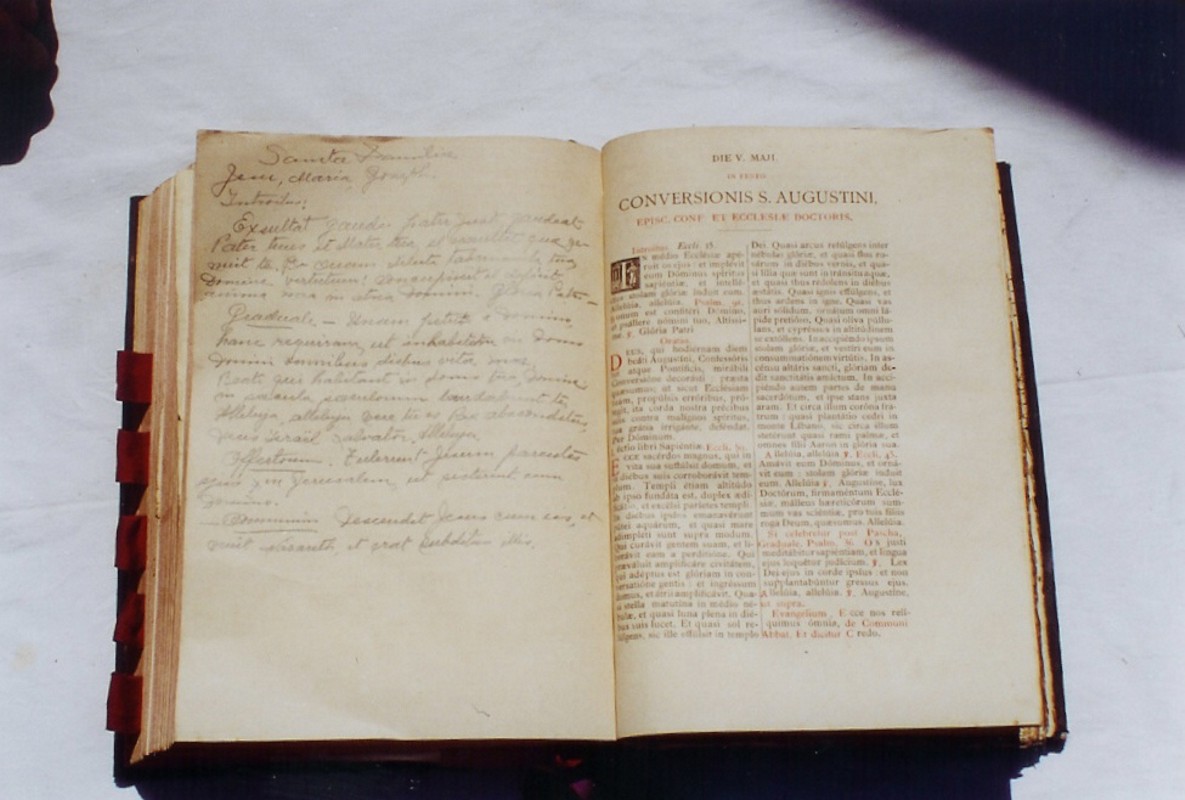 Sancta Familia
Jesu, Maria, Joseph.
Introitus:
Exsultat gaudio pater Justi gaudeat
Pater tuus et Mater tua, et exsultet quae ge-
nuit te. Ps Quam dilecta tabernacula tua
Domine virtutum! concupiscit et deficit
anima mea in atria Domini. Gloria Patri
Graduale. – Unam petii a Domino,
hanc requiram, ut inhabitem in domo
Domini omnibus diebus vita mea.
Beati qui habitant in domo tua, Domine
in saecula saeculorum laudabunt te.
Alleluya, alleluya vere tu es Rex absconditus,
Deus Israël salvator. Alleluya.
Offertorium. Tulerunt Jesum parentes
ejus in Jerusalem, ut sisterent eum
Domino.
Communio Descendit Jesus cum eis, et
venit Nazareth, et erat subditus illis.
DIE V. MAJI.
IN FESTO
CONVERSIONIS S. AUGUSTINI,
EPISC. CONF. ET ECCLESIÆ DOCTORIS.
Introitus Eccli 15.
IN médio Ecclésiæ apé-
ruit os ejus: et implévit
eum Dóminus spíritus
sapiéntiæ, et intellé-
ctus: stolam glóriæ índuit eum.
Allelúia, allelúia. Psalm. 91.
Bonum est confitéri Dómino,
et psállere nómini tuo, Altíssi-
me. ℣. Glória Patri
Oratio.
DEUS, qui hodiérnam diem
beáti Augustíni, Confessóris
tui atque Pontíficis, mirábili
Conversióne decorásti: præsta
quæsumus; ut sicut Ecclésiam
tuam, propúlsis erróribus, pró-
tegit, ita corda nostra précibus
suis contra malígnos spíritus,
tua grátia irrigánte, deféndat.
Per Dóminum.
Léctio libri Sapiéntiæ. Eccli. 50.
ECCE sacérdos magnus, qui in
vita sua suffúlsit domum, et
in diébus suis corroborávit tem-
plum. Templi étiam altitúdo
ab ipso fundáta est, duplex ædi-
ficátio, et excélsi paríetes templi.
In diébus ipsíus emanavérunt
pútei aquárum, et quasi mare
adimpléti sunt supra modum.
Qui curávit gentem suam, et li-
berávit eam a perditióne. Qui
præváluit amplificáre civitátem,
qui adéptus est glóriam in con-
versatióne gentis: et ingréssum
domus, et átrii amplificávit. Qua-
si stella matutína in médio né-
bulæ, et quasi luna plena in dié-
bus suis lucet. Et quasi sol re-
fúlgens, sic ille effúlsit in templo
Dei. Quasi arcus refúlgens inter
nébulas glóriæ, et quasi flos ro-
sárum in diébus vernis, et qua-
si lília quæ sunt in tránsitu aquæ,
et quasi thus rédolens in diébus
æstátis. Quasi ignis effúlgens, et
thus ardens in igne. Quasi vas
auri sólidum, ornátum omni lá-
pide pretióso. Quasi olíva púllu-
lans, et cypréssus in altitúdinem
se extóllens. In accipiéndo ipsum
stolam glóriæ, et vestíri eum in
consummatiónem virtútis. In as-
cénsu altáris sancti, glóriam de-
dit sanctitátis amíctum. In acci-
piéndo autem partes de manu
sacerdótum, et ipse stans juxta
aram. Et circa illum coróna fra-
trum: quasi plantátio cedri in
monte Líbano, sic circa illum
stetérunt quasi rami palmæ, et
omnes fílii Aaron in glória sua.
Allelúia, allelúia ℣. Eccli. 45.
Amávit eum Dóminus, et orná-
vit eum: stolam glóriæ índuit
eum. Allelúia ℣. Augustíne, lux
Doctórum, firmaméntum Ecclé-
siæ, málleus hæreticórum sum-
mum vas sciéntiæ, pro tuis fíliis
roga Deum, quǽsumus. Allelúia.
Si celebretur post Pascha,
Graduale. Psalm. 36. Os justi
meditábitur sapiéntiam, et lingua
ejus loquétur judícium. ℣. Lex
Dei ejus in corde ipsíus: et non
supplantabúntur gressus ejus.
Allelúia, allelúia. ℣. Augustíne,
ut supra.
Evangelium, Ecce nos relí-
quimus ómnia, de Communi
Abbat. Et dicitur Credo.